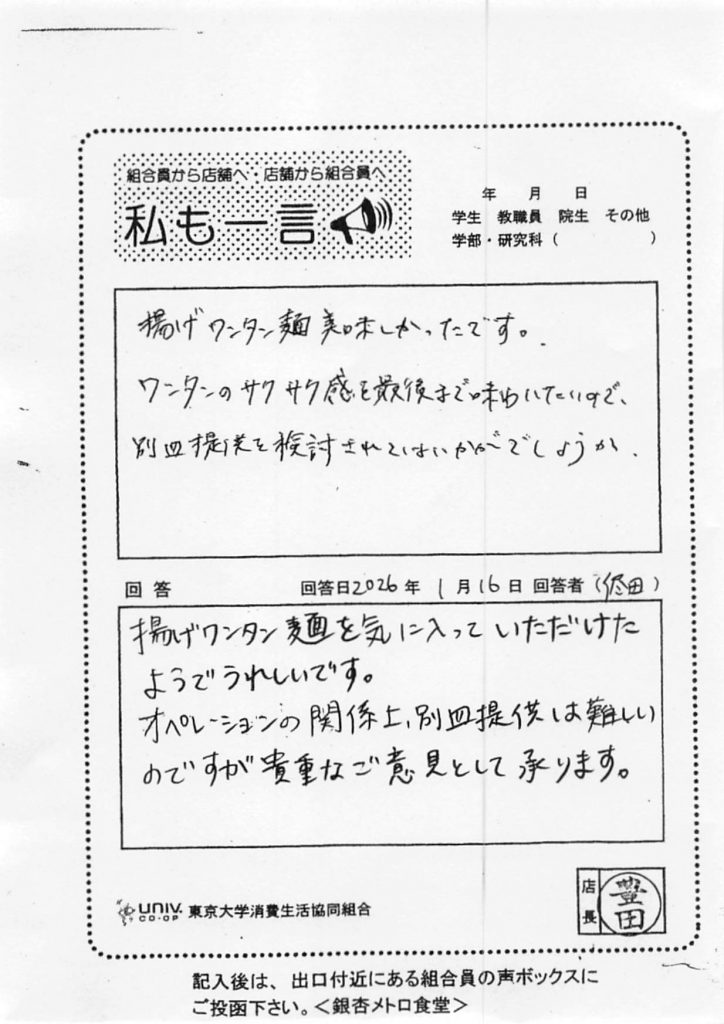 組合員から店舗へ・店舗から組合員へ
私も一言
年 月 日
学生 教職員 院生 その他
学部・研究科（ ）
揚げワンタン麺美味しかったです。
ワンタンのサクサク感を最後まで味わいたいので、
別皿提供を検討されてはいかがでしょうか.
回答 回答日2026年 1月16日 回答者（ 田）
揚げワンタン麺を気に入っていただけた
ようでうれしいです。
オペレーションの関係上、別皿提供は難しい
のですが貴重なご意見として承ります。
店長 豊田
UNIV. CO-OP 東京大学消費生活協同組合
記入後は、出口付近にある組合員の声ボックスに
ご投函下さい。＜銀杏メトロ食堂＞